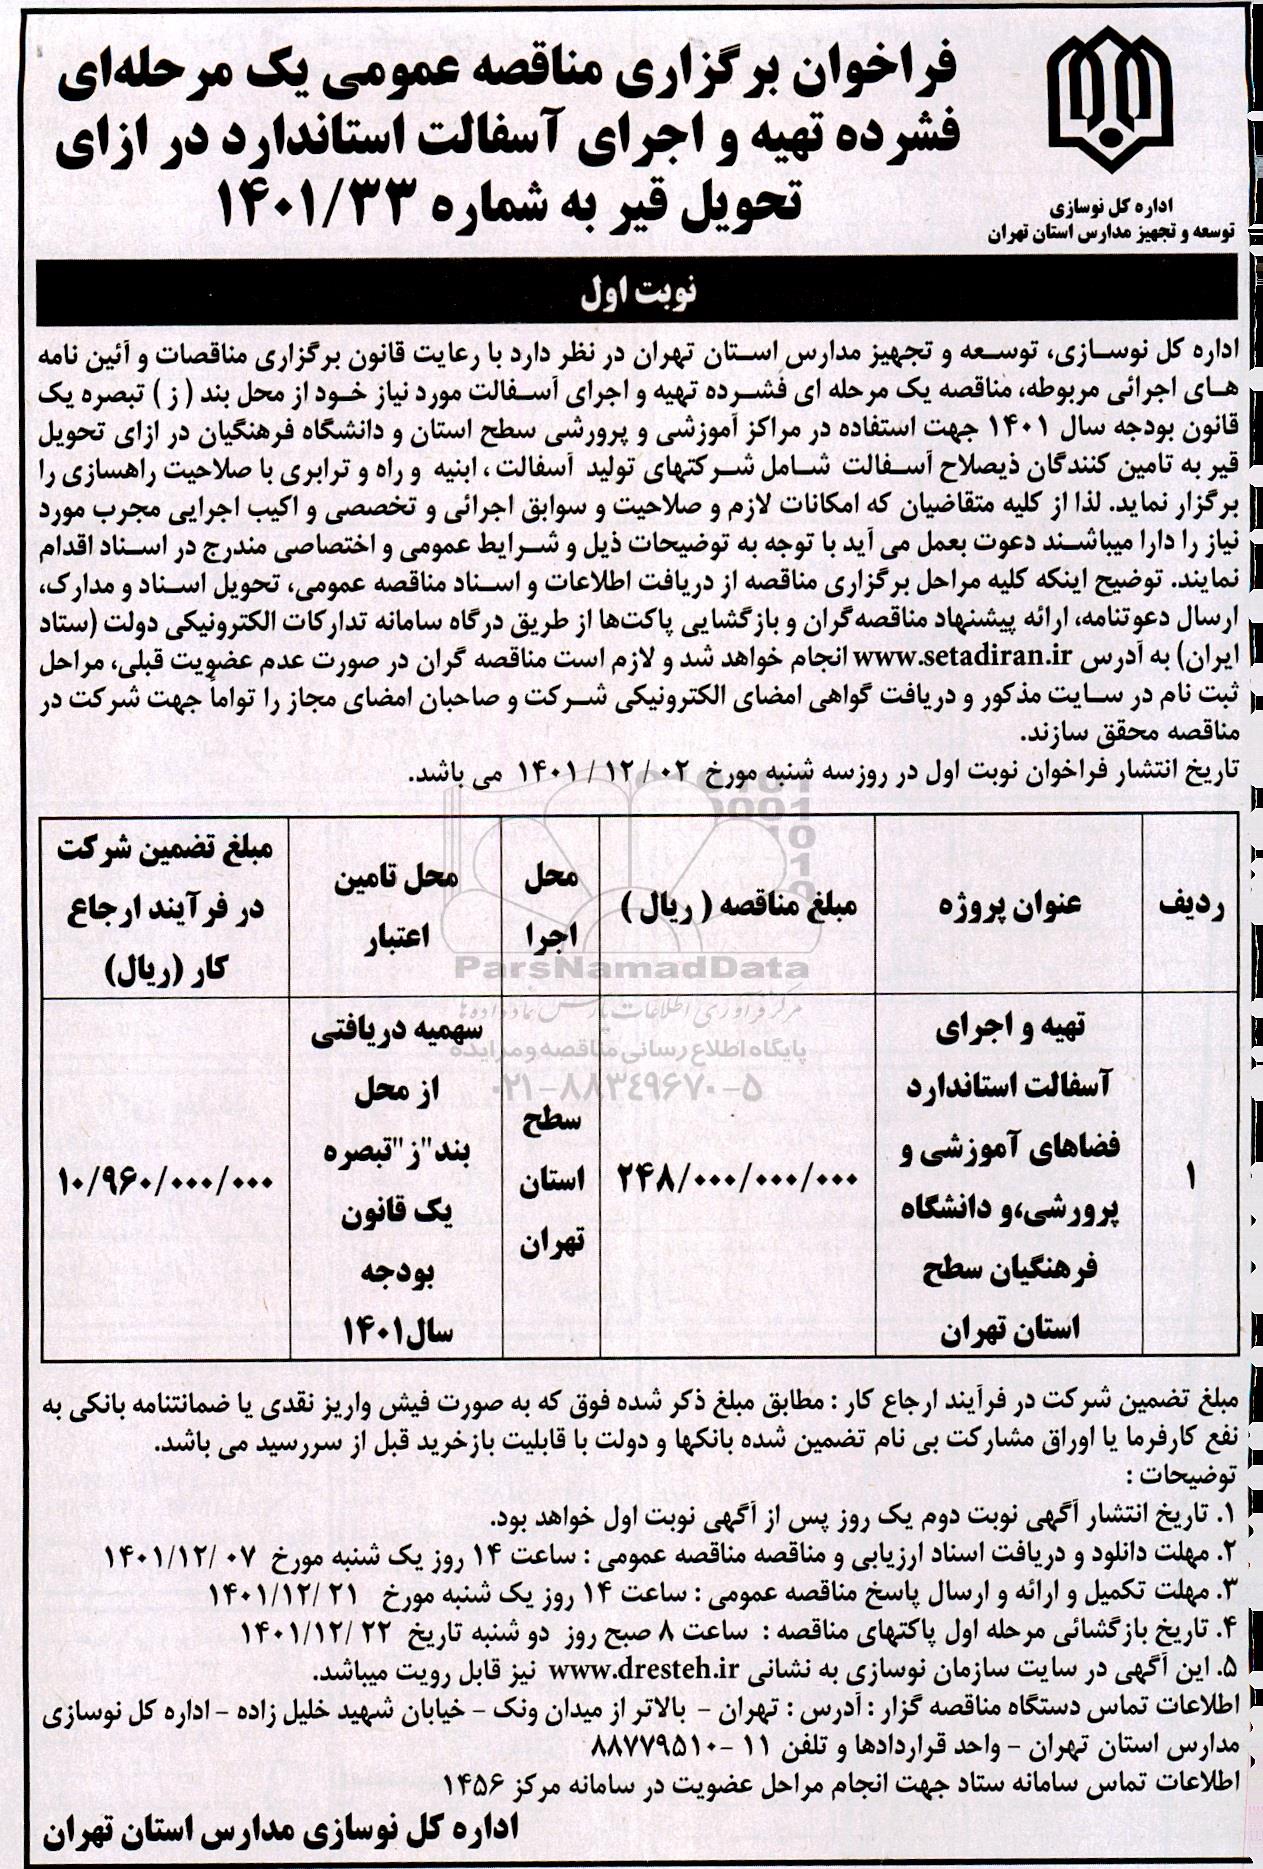 فراخوان برگزاری مناقصه عمومی یک مرحله‌ای
فشرده تهیه و اجرای آسفالت استاندارد در ازای
تحویل قیر به شماره ۱۴۰۱/۳۳
اداره کل نوسازی
توسعه و تجهیز مدارس استان تهران
نوبت اول
اداره کل نوسازی، توسعه و تجهیز مدارس استان تهران در نظر دارد با رعایت قانون برگزاری مناقصات و آئین نامه
های اجرائی مربوطه، مناقصه یک مرحله ای فشرده تهیه و اجرای آسفالت مورد نیاز خود از محل بند ( ز ) تبصره یک
قانون بودجه سال ۱۴۰۱ جهت استفاده در مراکز آموزشی و پرورشی سطح استان و دانشگاه فرهنگیان در ازای تحویل
قیر به تامین کنندگان ذیصلاح آسفالت شامل شرکتهای تولید آسفالت ، ابنیه و راه و ترابری با صلاحیت راهسازی را
برگزار نماید. لذا از کلیه متقاضیان که امکانات لازم و صلاحیت و سوابق اجرائی و تخصصی و اکیب اجرایی مجرب مورد
نیاز را دارا میباشند دعوت بعمل می آید با توجه به توضیحات ذیل و شرایط عمومی و اختصاصی مندرج در اسناد اقدام
نمایند. توضیح اینکه کلیه مراحل برگزاری مناقصه از دریافت اطلاعات و اسناد مناقصه عمومی، تحویل اسناد و مدارک،
ارسال دعوتنامه، ارائه پیشنهاد مناقصه‌گران و بازگشایی پاکت‌ها از طریق درگاه سامانه تدارکات الکترونیکی دولت (ستاد
ایران) به آدرس www.setadiran.ir انجام خواهد شد و لازم است مناقصه گران در صورت عدم عضویت قبلی، مراحل
ثبت نام در سایت مذکور و دریافت گواهی امضای الکترونیکی شرکت و صاحبان امضای مجاز را تواماً جهت شرکت در
مناقصه محقق سازند.
تاریخ انتشار فراخوان نوبت اول در روزسه شنبه مورخ ۰۲ /۱۲ /۱۴۰۱ می باشد.
ردیف
عنوان پروژه
مبلغ مناقصه ( ریال )
محل
اجرا
محل تامین
اعتبار
مبلغ تضمین شرکت
در فرآیند ارجاع
کار (ریال)
۱
تهیه و اجرای
آسفالت استاندارد
فضاهای آموزشی و
پرورشی،و دانشگاه
فرهنگیان سطح
استان تهران
۲۴۸/۰۰۰/۰۰۰/۰۰۰
سطح
استان
تهران
سهمیه دریافتی
از محل
بند"ز"تبصره
یک قانون
بودجه
سال۱۴۰۱
۱۰/۹۶۰/۰۰۰/۰۰۰
ParsNamadData
مرکز فرآوری اطلاعات پارس نماد داده‌ها
پایگاه اطلاع رسانی مناقصه و مزایده
۰۲۱-۸۸۳۴۹۶۷۰-۵
مبلغ تضمین شرکت در فرآیند ارجاع کار : مطابق مبلغ ذکر شده فوق که به صورت فیش واریز نقدی یا ضمانتنامه بانکی به
نفع کارفرما یا اوراق مشارکت بی نام تضمین شده بانکها و دولت با قابلیت بازخرید قبل از سررسید می باشد.
توضیحات :
۱. تاریخ انتشار آگهی نوبت دوم یک روز پس از آگهی نوبت اول خواهد بود.
۲. مهلت دانلود و دریافت اسناد ارزیابی و مناقصه مناقصه عمومی : ساعت ۱۴ روز یک شنبه مورخ ۰۷ /۱۴۰۱/۱۲
۳. مهلت تکمیل و ارائه و ارسال پاسخ مناقصه عمومی : ساعت ۱۴ روز یک شنبه مورخ ۲۱ /۱۴۰۱/۱۲
۴. تاریخ بازگشائی مرحله اول پاکتهای مناقصه : ساعت ۸ صبح روز دو شنبه تاریخ ۲۲ /۱۴۰۱/۱۲
۵. این آگهی در سایت سازمان نوسازی به نشانی www.dresteh.ir نیز قابل رویت میباشد.
اطلاعات تماس دستگاه مناقصه گزار : آدرس : تهران - بالاتر از میدان ونک - خیابان شهید خلیل زاده - اداره کل نوسازی
مدارس استان تهران - واحد قراردادها و تلفن ۱۱ -۸۸۷۷۹۵۱۰
اطلاعات تماس سامانه ستاد جهت انجام مراحل عضویت در سامانه مرکز ۱۴۵۶
اداره کل نوسازی مدارس استان تهران